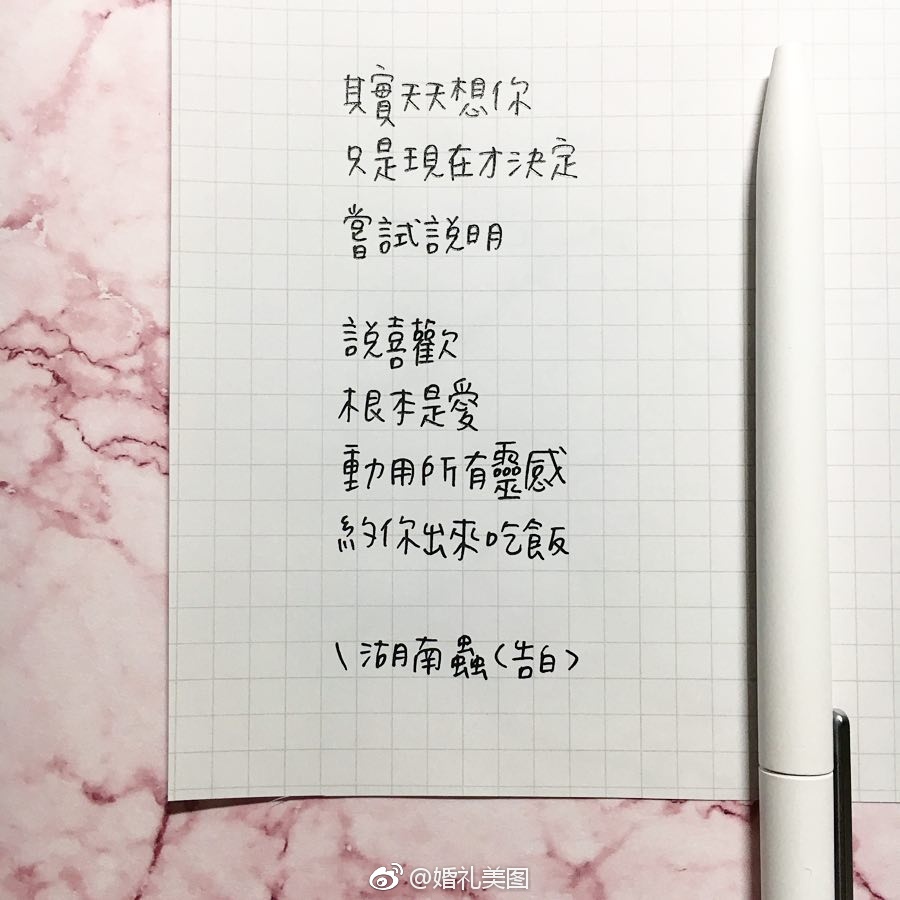 其實天天想你
只是現在才決定
嘗試說明
說喜歡
根本是愛
動用所有靈感
約你出來吃飯
\湖南蟲（告白）
@婚礼美图